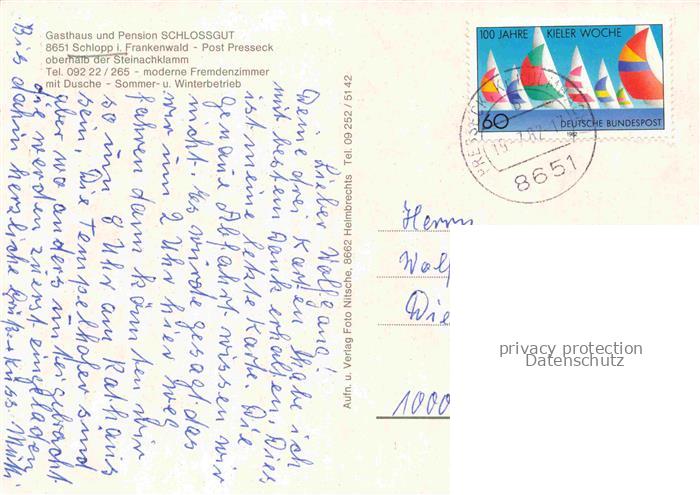 Gasthaus und Pension SCHLOSSGUT
8651 Schlopp i. Frankenwald - Post Presseck
oberhalb der Steinachklamm
Tel. 092 22 / 265 - moderne Fremdenzimmer
mit Dusche - Sommer- u. Winterbetrieb
Lieber Wolfgang!
Deine drei Karten habe ich
mit bestem Dank erhalten. Dies
ist meine letzte Karte. Die
genaue Abfahrt wissen wir
nicht. Es wurde gesagt das
wir um 2 Uhr hier weg
fahren dann könnten wir
so um 8 Uhr am Rathaus
sein. Die Tempelhofer sind
aber wo anders untergebracht
die werden zuerst eingeladen
Bis dahin herzliche Grüße + Kuss. Mutti.
Aufn. u. Verlag Foto Nitsche, 8662 Helmbrechts Tel. 09 252 / 51 42
100 JAHRE KIELER WOCHE
60 DEUTSCHE BUNDESPOST
1982
8651
Herrn
Wolf
Die
1000
privacy protection
Datenschutz